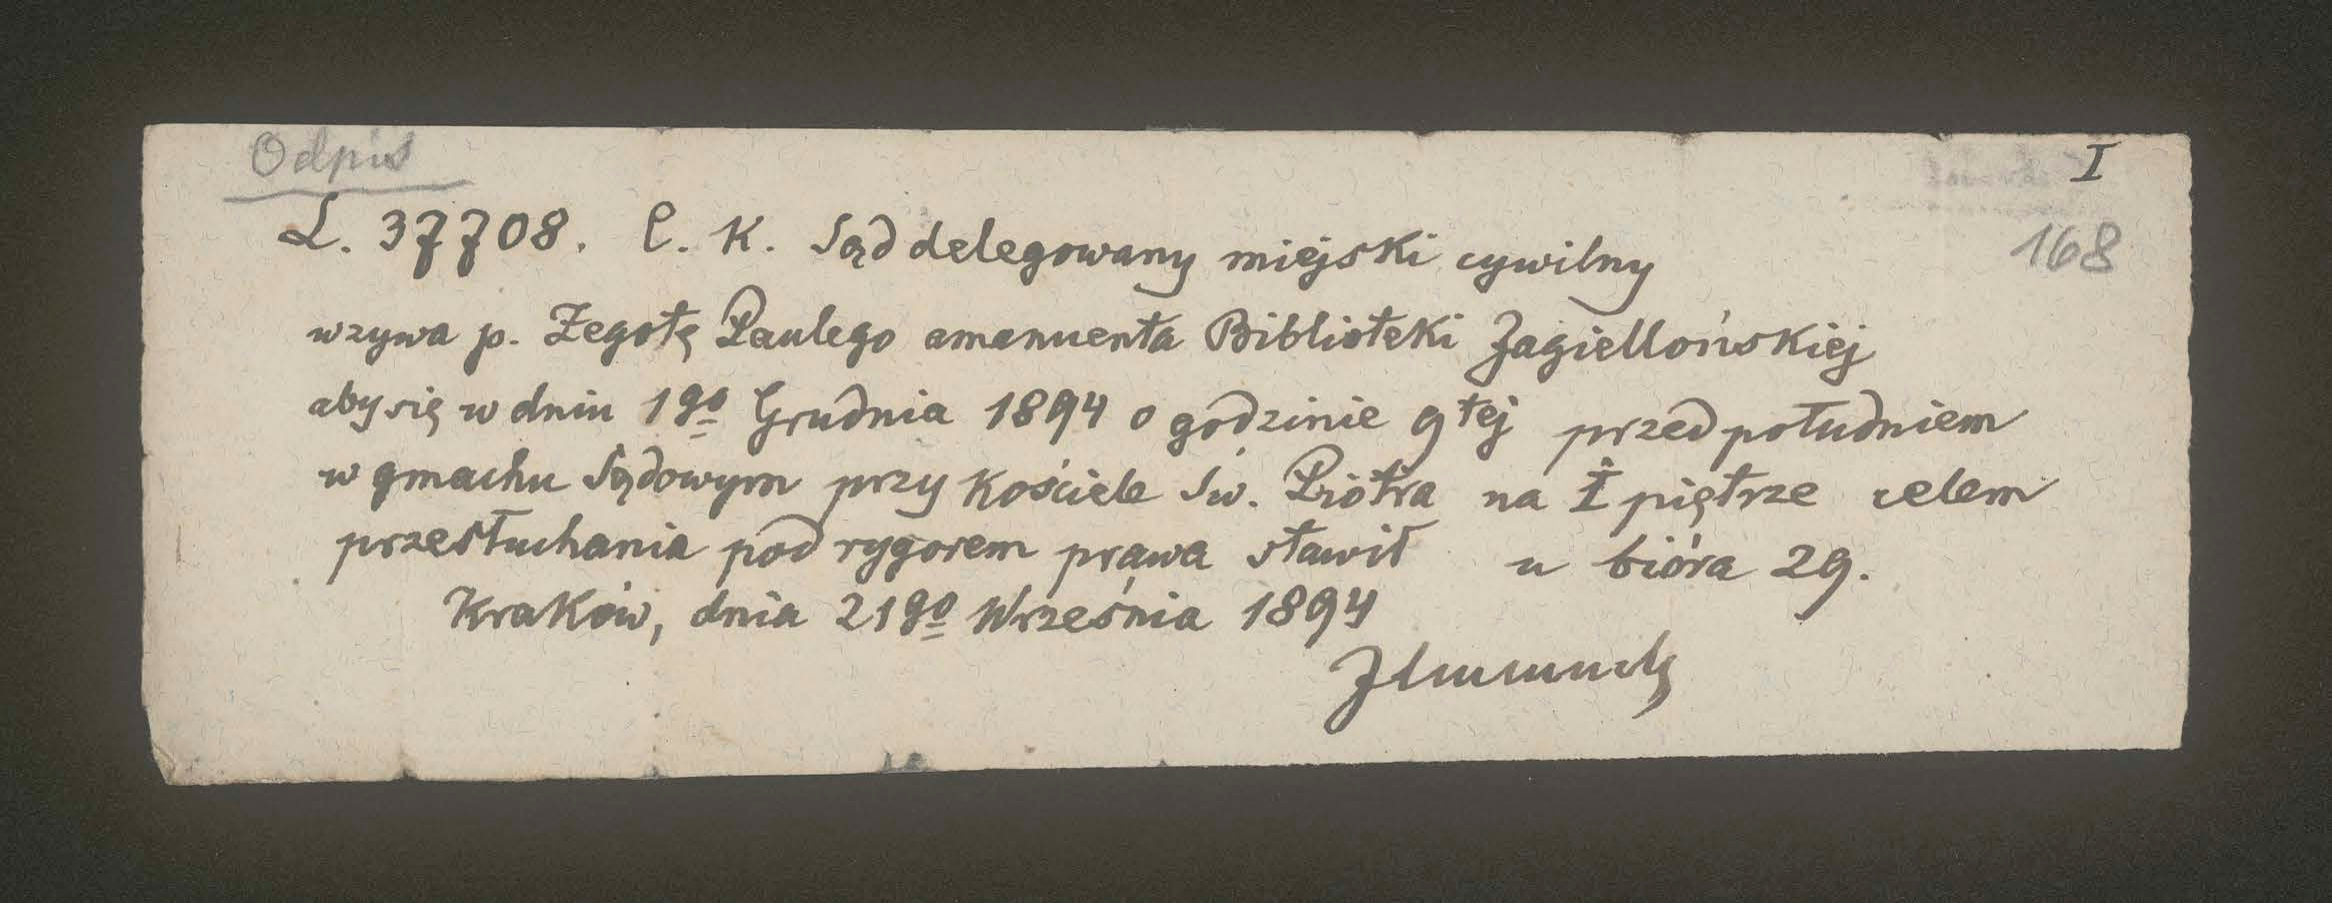 Odpis
I
168
L. 37708. C. K. Sąd delegowany miejski cywilny
wzywa p. Żegotę Paulego amanuenta Biblioteki Jagiellońskiej
aby się w dniu 1go Grudnia 1894 o godzinie 9tej przed południem
w gmachu Sądowym przy Kościele Św. Piotra na I piętrze celem
przesłuchania pod rygorem prawa stawił u bióra 29.
Kraków, dnia 21go Września 1894